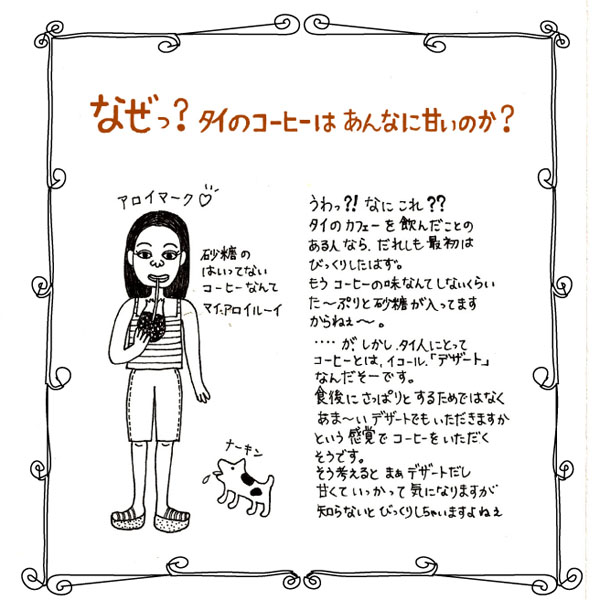 なぜっ? タイのコーヒーは あんなに甘いのか?
アロイマーク♡
砂糖の
はいってない
コーヒーなんて
マイ、アロイルーイ
ナーキン
うわっ?! なに これ ??
タイの カフェー を 飲んだことの
ある人 なら、だれしも 最初は
びっくりしたはず。
もう コーヒーの味なんてしないくらい
た〜ぷりと 砂糖 が 入ってます
からねぇ〜。
‥‥ が、しかし、タイ人にとって
コーヒーとは、イコール、「デザート」
なんだそーです。
食後に さっぱりと するためではなく
あま〜い デザートでも いただきますか
という 感覚で コーヒーを いただく
そうです。
そう考えると まぁ デザートだし
甘くて いっかって 気になりますが
知らないと びっくりしちゃいますよねぇ